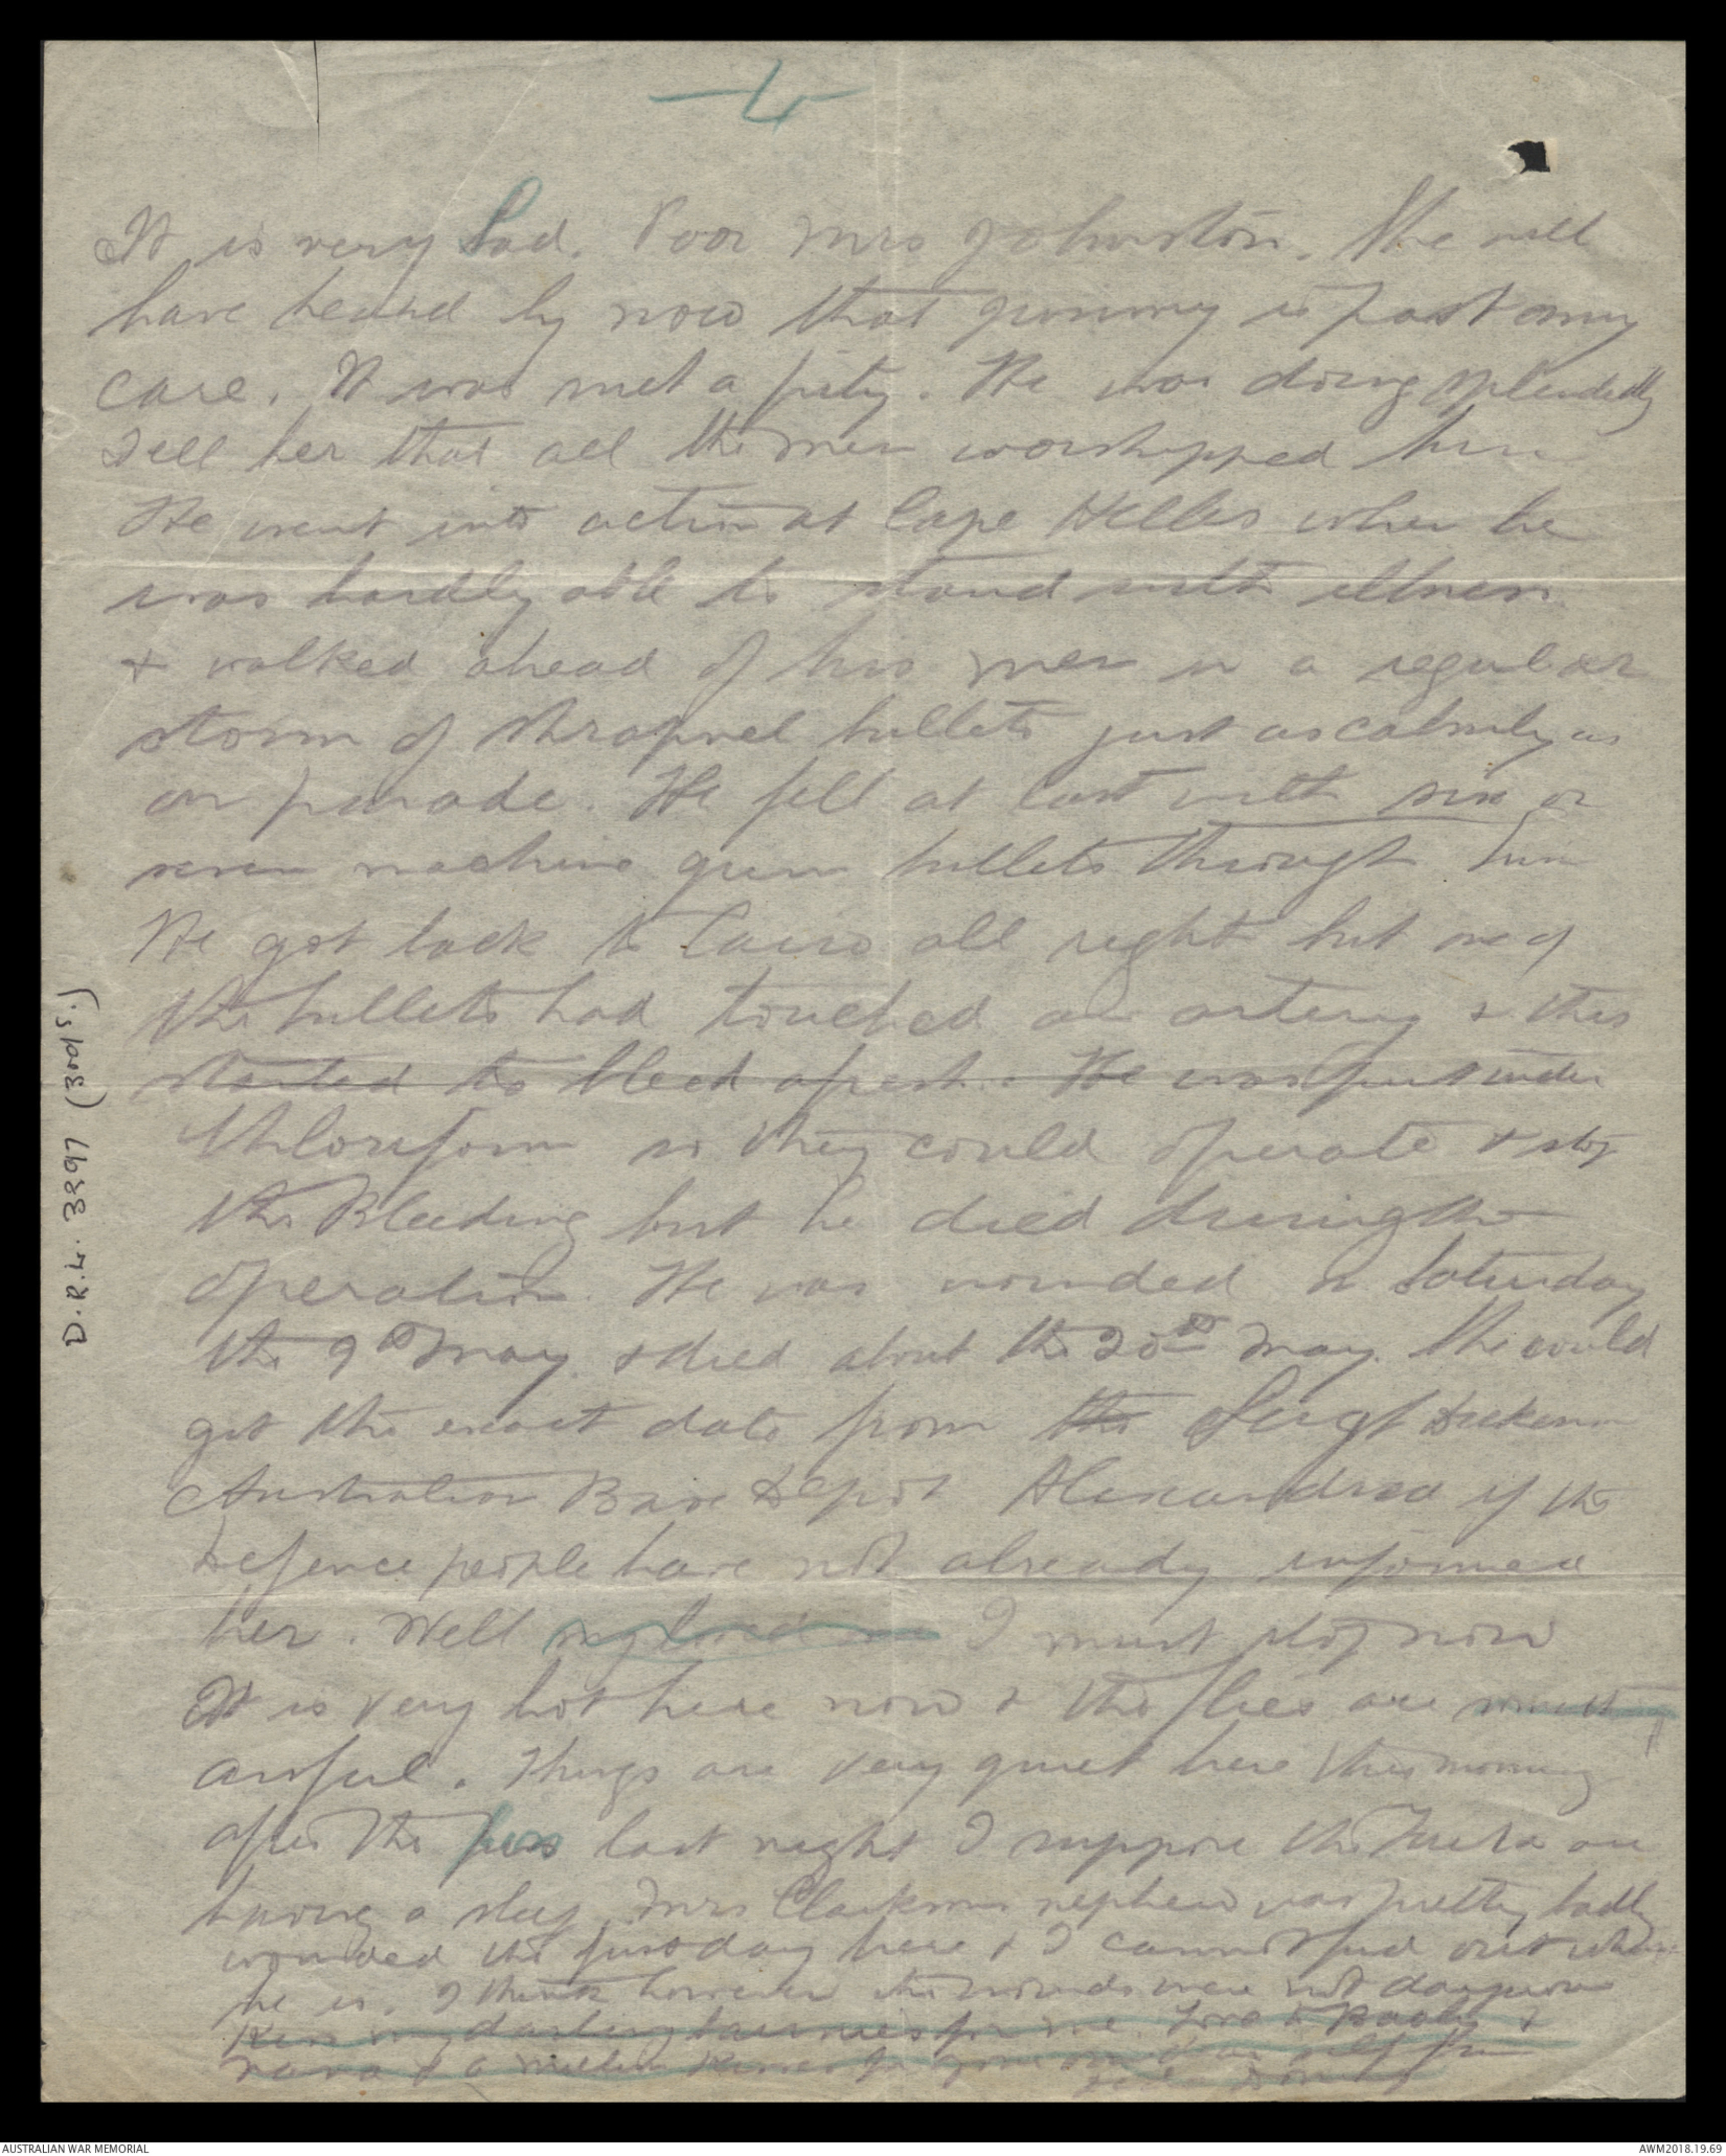 4
It is very Sad. Poor Mrs Johnston. She will
have heard by now that Jimmy is past any
care. It was such a pity. He was doing splendidly
Tell her that all the men worshipped him
He went into action at Cape Helles when he
was hardly able to stand with illness
& walked ahead of his men in a regular
storm of shrapnel bullets just as calmly as
on parade. He fell at last with six or
seven machine gun bullets through him
He got back to Cairo all right but one of
the bullets had touched an artery & this
started to bleed afresh. He was put under
Chloroform so they could operate & stop
the Bleeding but he died during the
operation. He was wounded on Saturday
the 9th May & died about the 20th May. She could
get the exact date from the Sergt Dickenson
Australian Base Depot Alexandria if the
Defence people have not already informed
her. Well my loved one I must stop now
It is very hot here now & the flies are something
awful. Things are very quiet here this morning
after the fuss last night I suppose the Turks are
having a sleep. Mrs Clarksons nephew was pretty badly
wounded the first day here & I cannot find out where
he is. I think however the wounds were not dangerous
Kiss my darling for me. Love to &
& a million kisses for your own dear self from
D.R.L. 3897 (3rd/s.)
AUSTRALIAN WAR MEMORIAL
AWM2018.19.69